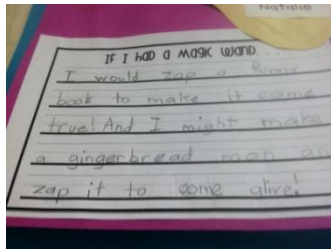 Natalie
IF I HAD A MAGIC WAND...
I would zap a funny
book to make it come
true! And I might make
a gingerbread man an
zap it to come alive!